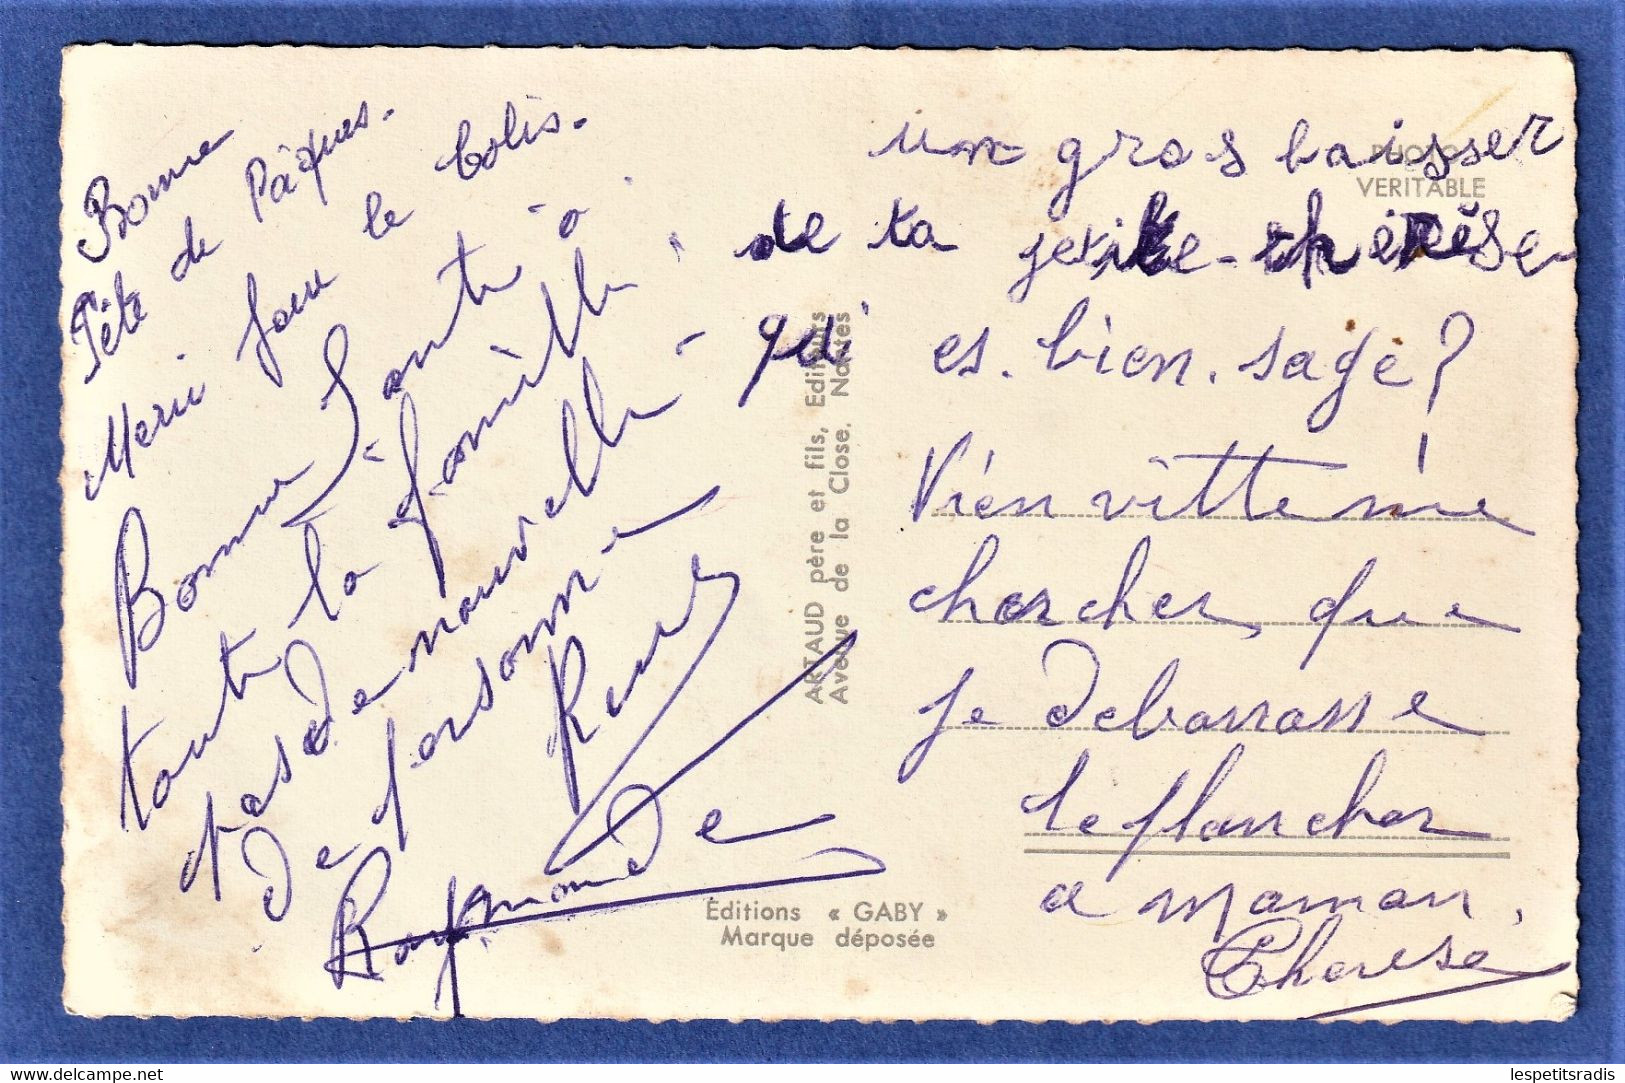 Bonne
Fête de Pâques.
Merci pour le Colis.
Bonne Santé à
toute la famille
pas de nouvelle
de personne
René
Raymonde
un gros baisser
de ta petite therése
qui es. bien. sage?
Vien vitte me
chercher, que
je debarrasse
le plancher
a maman,
Therese
PHOTO
VERITABLE
ARTAUD père et fils, Editeurs
Avenue de la Close, Nantes
Editions « GABY »
Marque déposée
delcampe.net
lespetitsradis